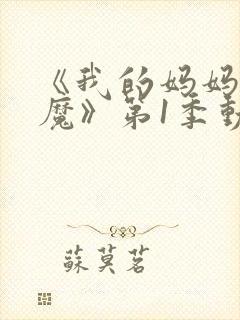 《我的妈妈
魔》第1季動
蘇莫茗